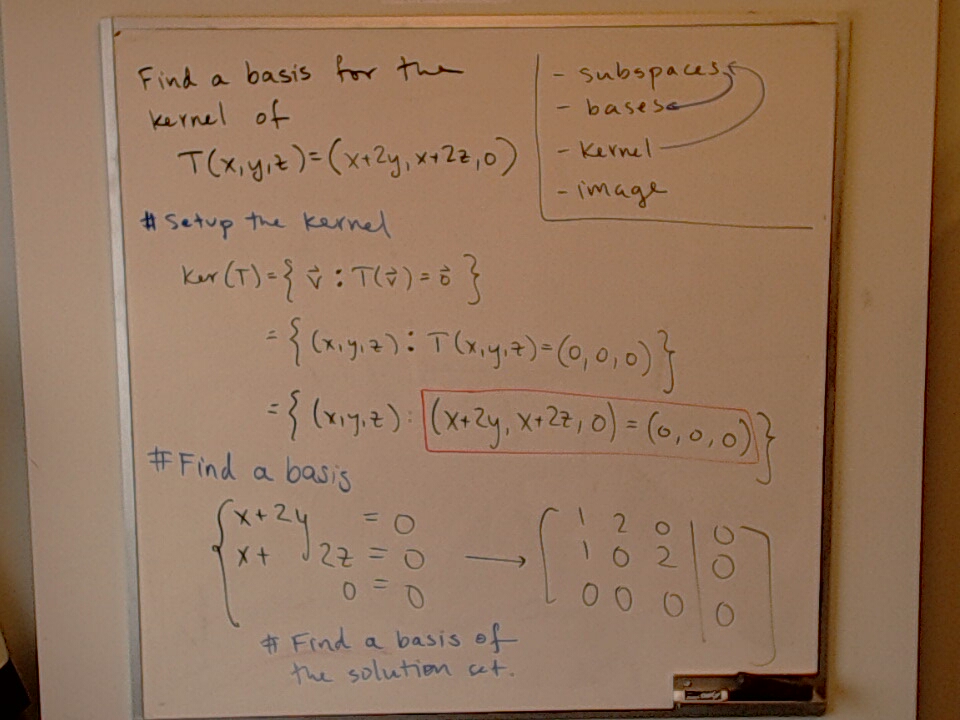 Find a basis for the
kernel of
T(x,y,z)=(x+2y, x+2z, 0)
- subspaces
- bases
- kernel
- image
# Setup the kernel
Ker(T)={ v⃗ : T(v⃗)=0⃗ }
={ (x,y,z): T(x,y,z)=(0,0,0)}
={ (x,y,z): (x+2y, x+2z, 0) = (0,0,0)}
# Find a basis
{ x+2y = 0
x+ 2z = 0
0 = 0
→
[ 1 2 0 | 0 ]
1 0 2 | 0
0 0 0 | 0
# Find a basis of
the solution set.